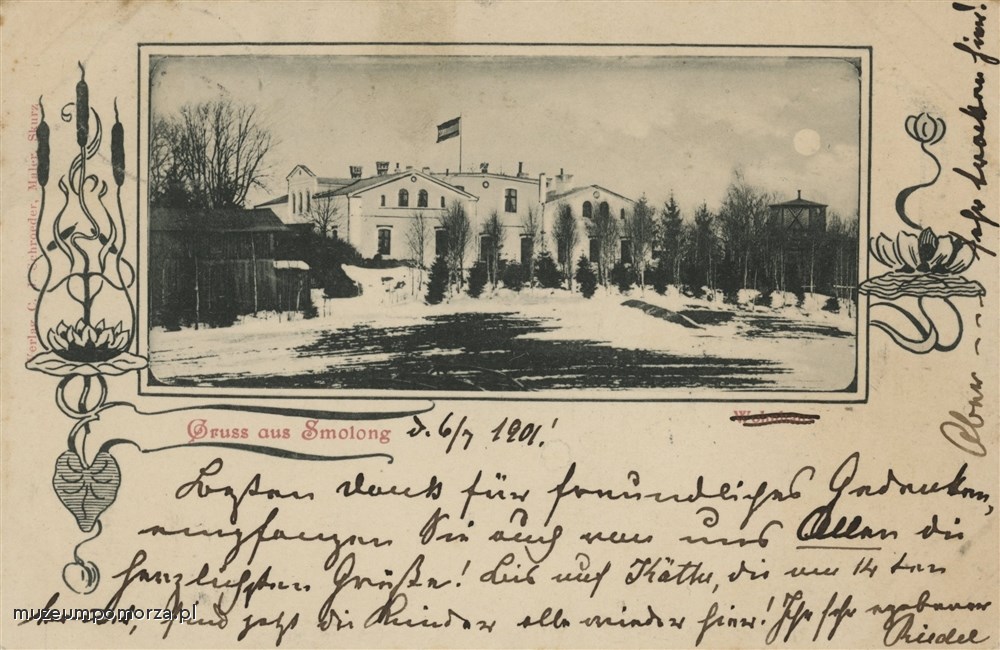 Verlag C. Schroeder, Maler, Skurz
Gruss aus Smolong d. 6/7 1901!
Besten Dank für freundliches Gedenken,
empfangen Sie auch von uns Allen die
herzlichsten Grüße! Bis auf Käthe, die am 14 ten
sind jetzt die Kinder alle wieder hier! Ihr sehr ergebener
Riedel
Aber
hier!
muzeumpomorza.pl